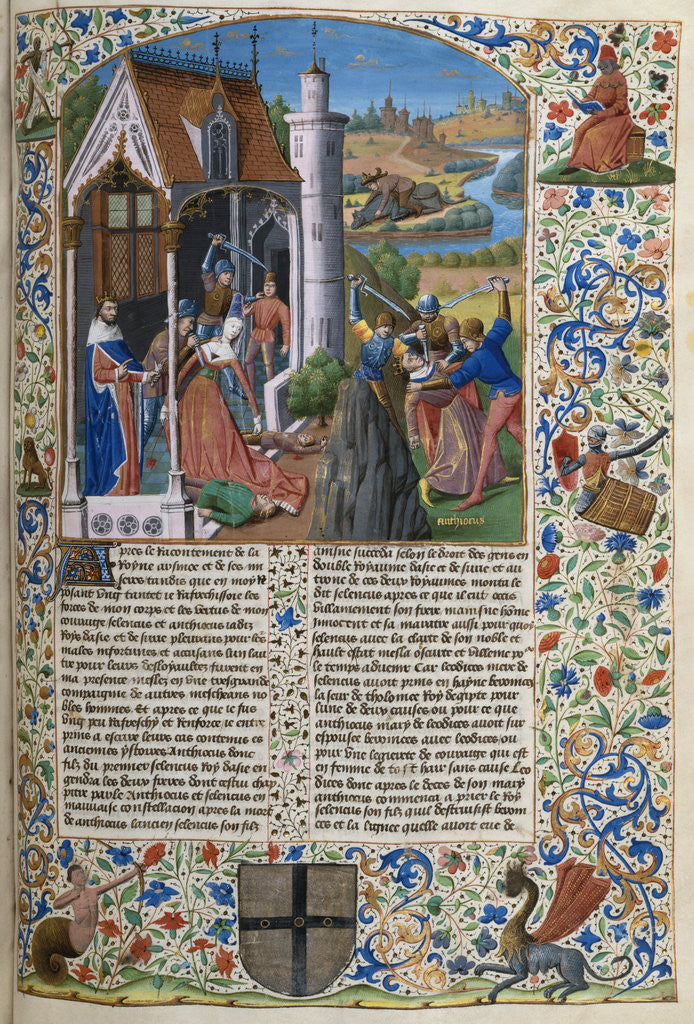 anthiocus
Apres le Racontement de la
Royne arsinoe et de ses mi
seres tandis que en moy Re
posant ung tantet ie Rafreschissoie les
forces de mon corps et les vertus de mon
couraige/seleucus et anthiocus iadiz
Roys dasie et de sirie pleurans pour les
males infortunes et accusans lun lau
tre pour leurs desloyaultez furent en
ma presence meslez en une tresgrande
compaignie de autres mescheans no
bles hommes. Et apres ce que ie fus
ung peu Rafreschy et Renforce ie entre
prins a escrire leurs cas contenus es
anciennes ystoires. Anthiocus donc
filz du premier seleucus Roy dasie en
gendra les deux freres dont cestui chap
pitre parle Anthiocus et seleucus en
mauvaise constellacion apres la mort
de anthiocus lancien seleucus son filz
ainsne succeda selon le droit des gens en
double Royaume dasie et de sirie et au
trone de ces deux Royaumes monta le
dit seleucus apres ce que il eut occis
villainement son frere mainsne hōme
innocent et sa maratre aussi pour quoy
seleucus avec la clarte de son noble et
hault estat mesla oscurte et villenie po²
le temps advenir Car leodices mere de
seleucus avoit prins en hayne beronices
la seur de tholomee Roy degipte pour
lune de deux causes/ou pour ce que
anthiocus mary de leodices avoit sur
espousee beronices avec leodices/ou
pour une legierete de couraige qui est
en femme de tost hair sans cause Leo
dices donc apres le deces de son mary
anthiocus commenca a prier le Roy
seleucus son filz quil destruisist beroni
ces et la lignee quelle avoit eue de